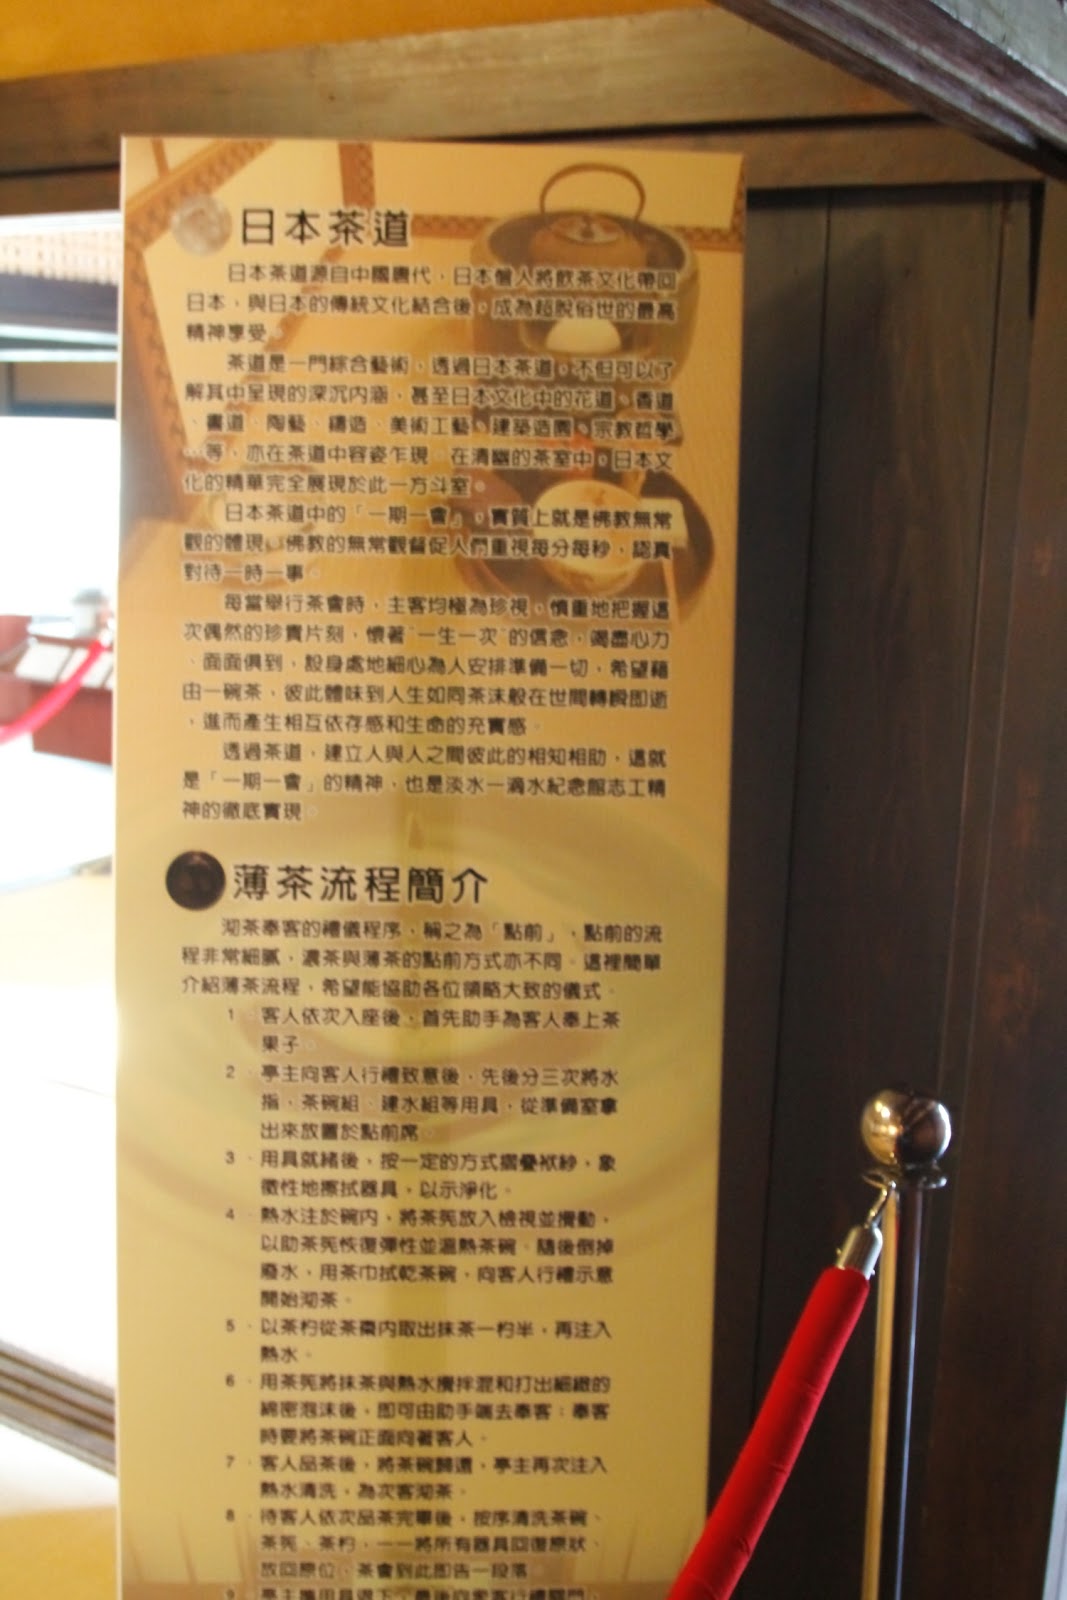 日本茶道
日本茶道源自中國唐代，日本僧人將飲茶文化帶回
日本，與日本的傳統文化結合後，成為超脫俗世的最高
精神享受。
茶道是一門綜合藝術，透過日本茶道，不但可以了
解其中呈現的深沉內涵，甚至日本文化中的花道、香道
、書道、陶藝、鑄造、美術工藝、建築造園、宗教哲學
…等，亦在茶道中容姿乍現。在清幽的茶室中，日本文
化的精華完全展現於此一方斗室。
日本茶道中的「一期一會」，實質上就是佛教無常
觀的體現。佛教的無常觀督促人們重視每分每秒，認真
對待一時一事。
每當舉行茶會時，主客均極為珍視，慎重地把握這
次偶然的珍貴片刻，懷著"一生一次"的信念，竭盡心力
、面面俱到，設身處地細心為人安排準備一切，希望藉
由一碗茶，彼此體味到人生如同茶沫般在世間轉瞬即逝
，進而產生相互依存感和生命的充實感。
透過茶道，建立人與人之間彼此的相知相助，這就
是「一期一會」的精神，也是淡水一滴水紀念館志工精
神的徹底實現。
薄茶流程簡介
沏茶奉客的禮儀程序，稱之為「點前」，點前的流
程非常細膩，濃茶與薄茶的點前方式亦不同。這裡簡單
介紹薄茶流程，希望能協助各位領略大致的儀式。
1. 客人依次入座後，首先助手為客人奉上茶
果子。
2. 亭主向客人行禮致意後，先後分三次將水
指、茶碗組、建水組等用具，從準備室拿
出來放置於點前席。
3. 用具就緒後，按一定的方式摺疊袱紗，象
徵性地擦拭器具，以示淨化。
4. 熱水注於碗內，將茶筅放入檢視並攪動，
以助茶筅恢復彈性並溫熱茶碗。隨後倒掉
廢水，用茶巾拭乾茶碗，向客人行禮示意
開始沏茶。
5. 以茶杓從茶棗內取出抹茶一杓半，再注入
熱水。
6. 用茶筅將抹茶與熱水攪拌混和打出細緻的
綿密泡沫後，即可由助手端去奉客；奉客
時要將茶碗正面向著客人。
7. 客人品茶後，將茶碗歸還，亭主再次注入
熱水清洗，為次客沏茶。
8. 待客人依次品茶完畢後，按序清洗茶碗、
茶筅、茶杓，一一將所有器具回復原狀、
放回原位，茶會到此即告一段落。
9. 亭主將用具退下，最後向眾客行禮